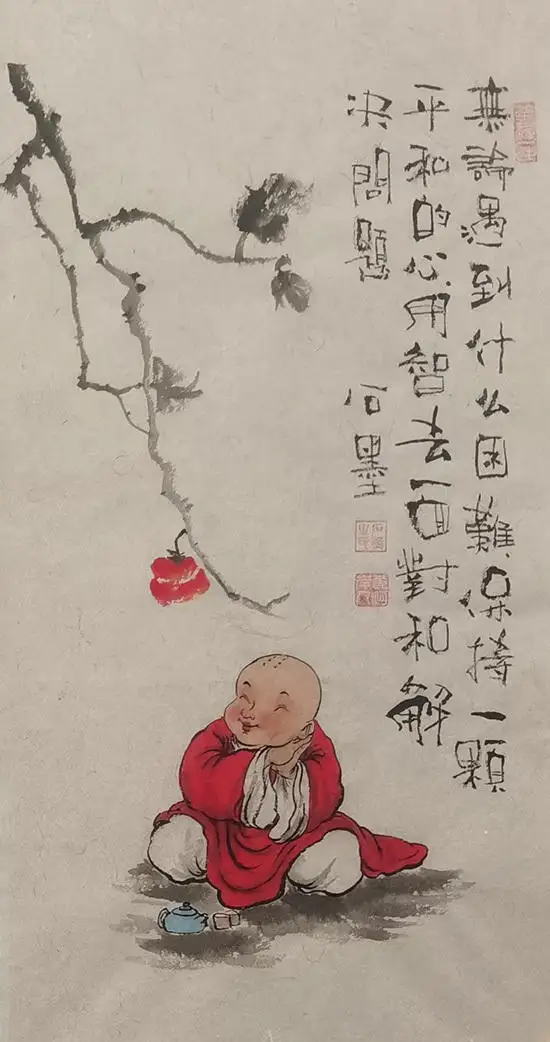 無論遇到什么困難保持一顆
平和的心用智去面對和解
决問題
石墨